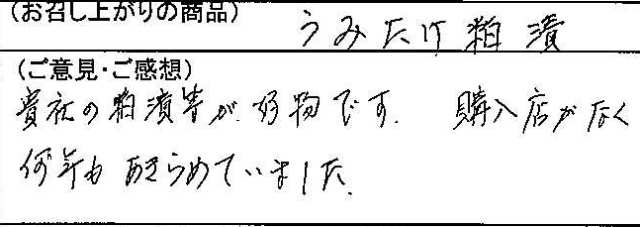 (お召し上がりの商品) うみたけ粕漬
(ご意見・ご感想)
貴社の粕漬等が、好物です。 購入店がなく
何年もあきらめていました。